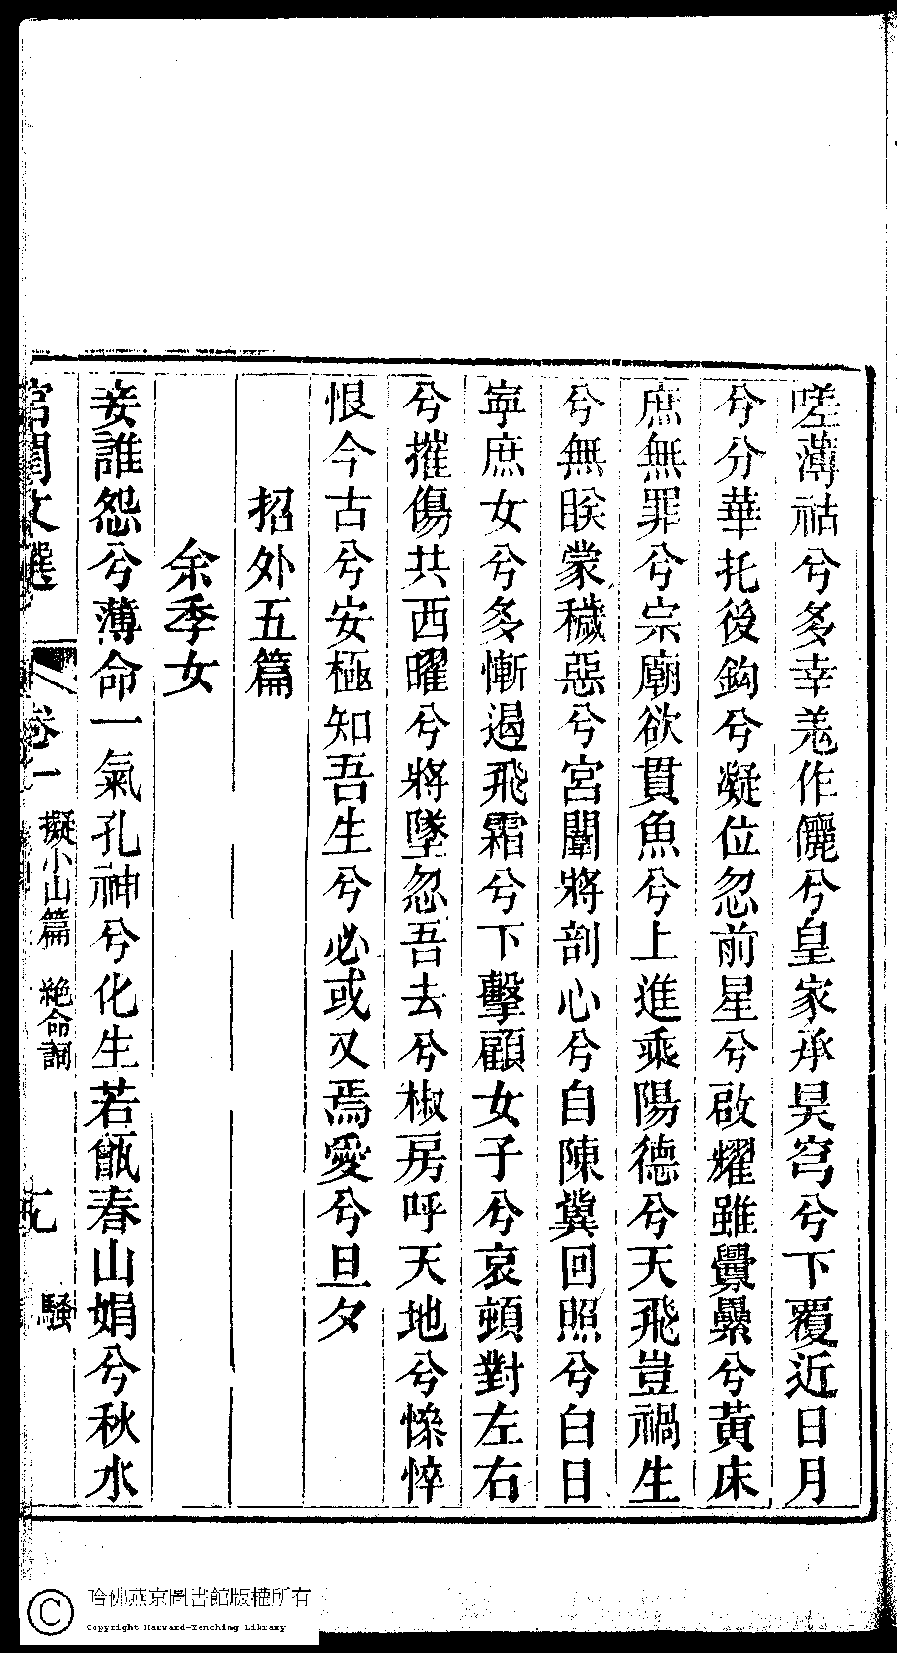 嗟薄祜兮多幸羗作儷兮皇家承昊穹兮下覆近日月
兮分華托後鈎兮凝位忽前星兮啟耀雖釁纍兮黃床
庶無罪兮宗廟欲貫魚兮上進乘陽德兮天飛豈禍生
兮無朕蒙穢惡兮宮闈將剖心兮自陳冀回照兮白日
寧庶女兮多慚遏飛霜兮下擊顧女子兮哀頓對左右
兮摧傷共西曜兮將墜忽吾去兮椒房呼天地兮慘悴
恨今古兮安極知吾生兮必或又焉愛兮旦夕
招外五篇
余季女
妾誰怨兮薄命一氣孔神兮化生若甑春山娟兮秋水
宮閨文選
卷一
擬小山篇 絶命詞
九
騷
哈佛燕京圖書館版權所有
Copyright Harvard-Yenching Library